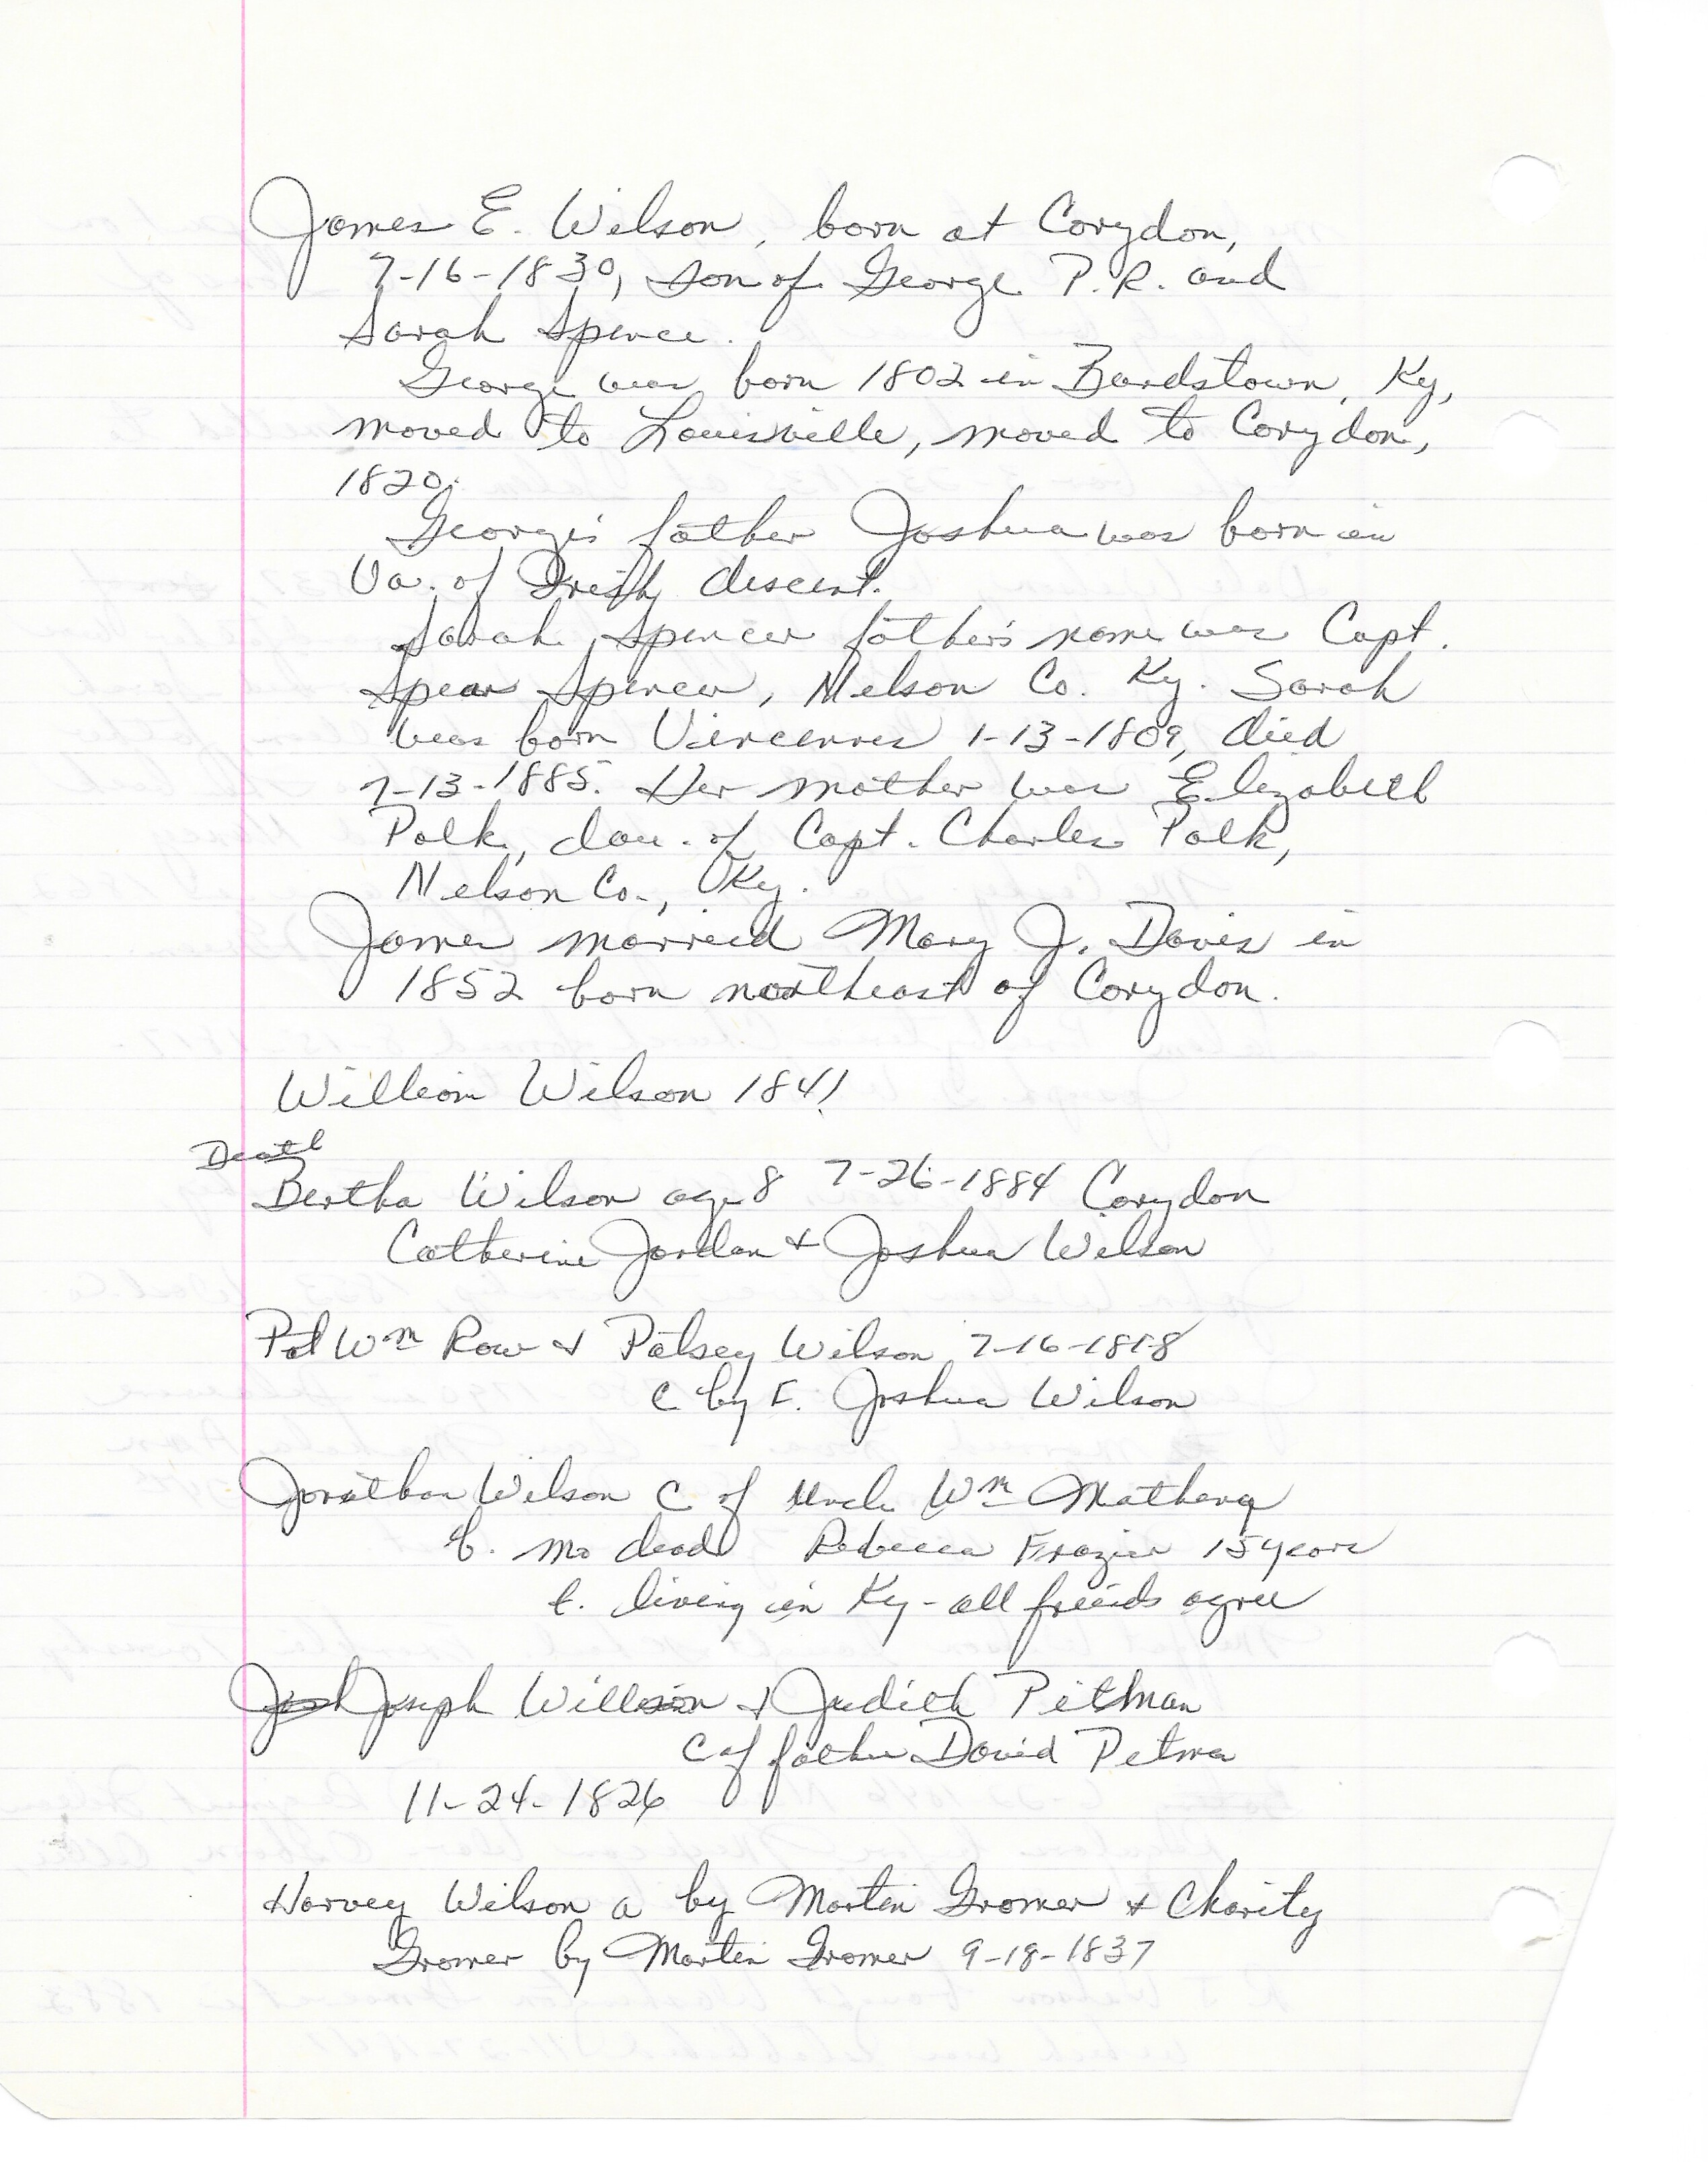 James E. Wilson, born at Corydon,
7-16-1830, son of George P.R. and
Sarah Spence.
George was born 1802 in Bardstown, Ky,
moved to Louisville, moved to Corydon,
1820.
George's father Joshua was born in
Va. of Irish descent.
Sarah Spencer father's name was Capt.
Spear Spencer, Nelson Co. Ky. Sarah
was born Vincennes 1-13-1809, died
7-13-1885. Her mother was Elizabeth
Polk, dau. of Capt. Charles Polk,
Nelson Co., Ky.
James married Mary J. Davis in
1852 born northeast of Corydon.
William Wilson 1841
Death
Bertha Wilson age 8 7-26-1884 Corydon
Catherine Jordan + Joshua Wilson
Wm Row + Patsey Wilson 7-16-1818
C by F. Joshua Wilson
Jonathan Wilson C of Uncle Wm
mo dead Rebecca Frazier 15 years
f. living in Ky - all friends agree
Joseph Willson + Judith Pittman
C of father David
11-24-1826
Harvey Wilson a by Martin Gromer + Charity
Gromer by Martin Gromer 9-18-1837